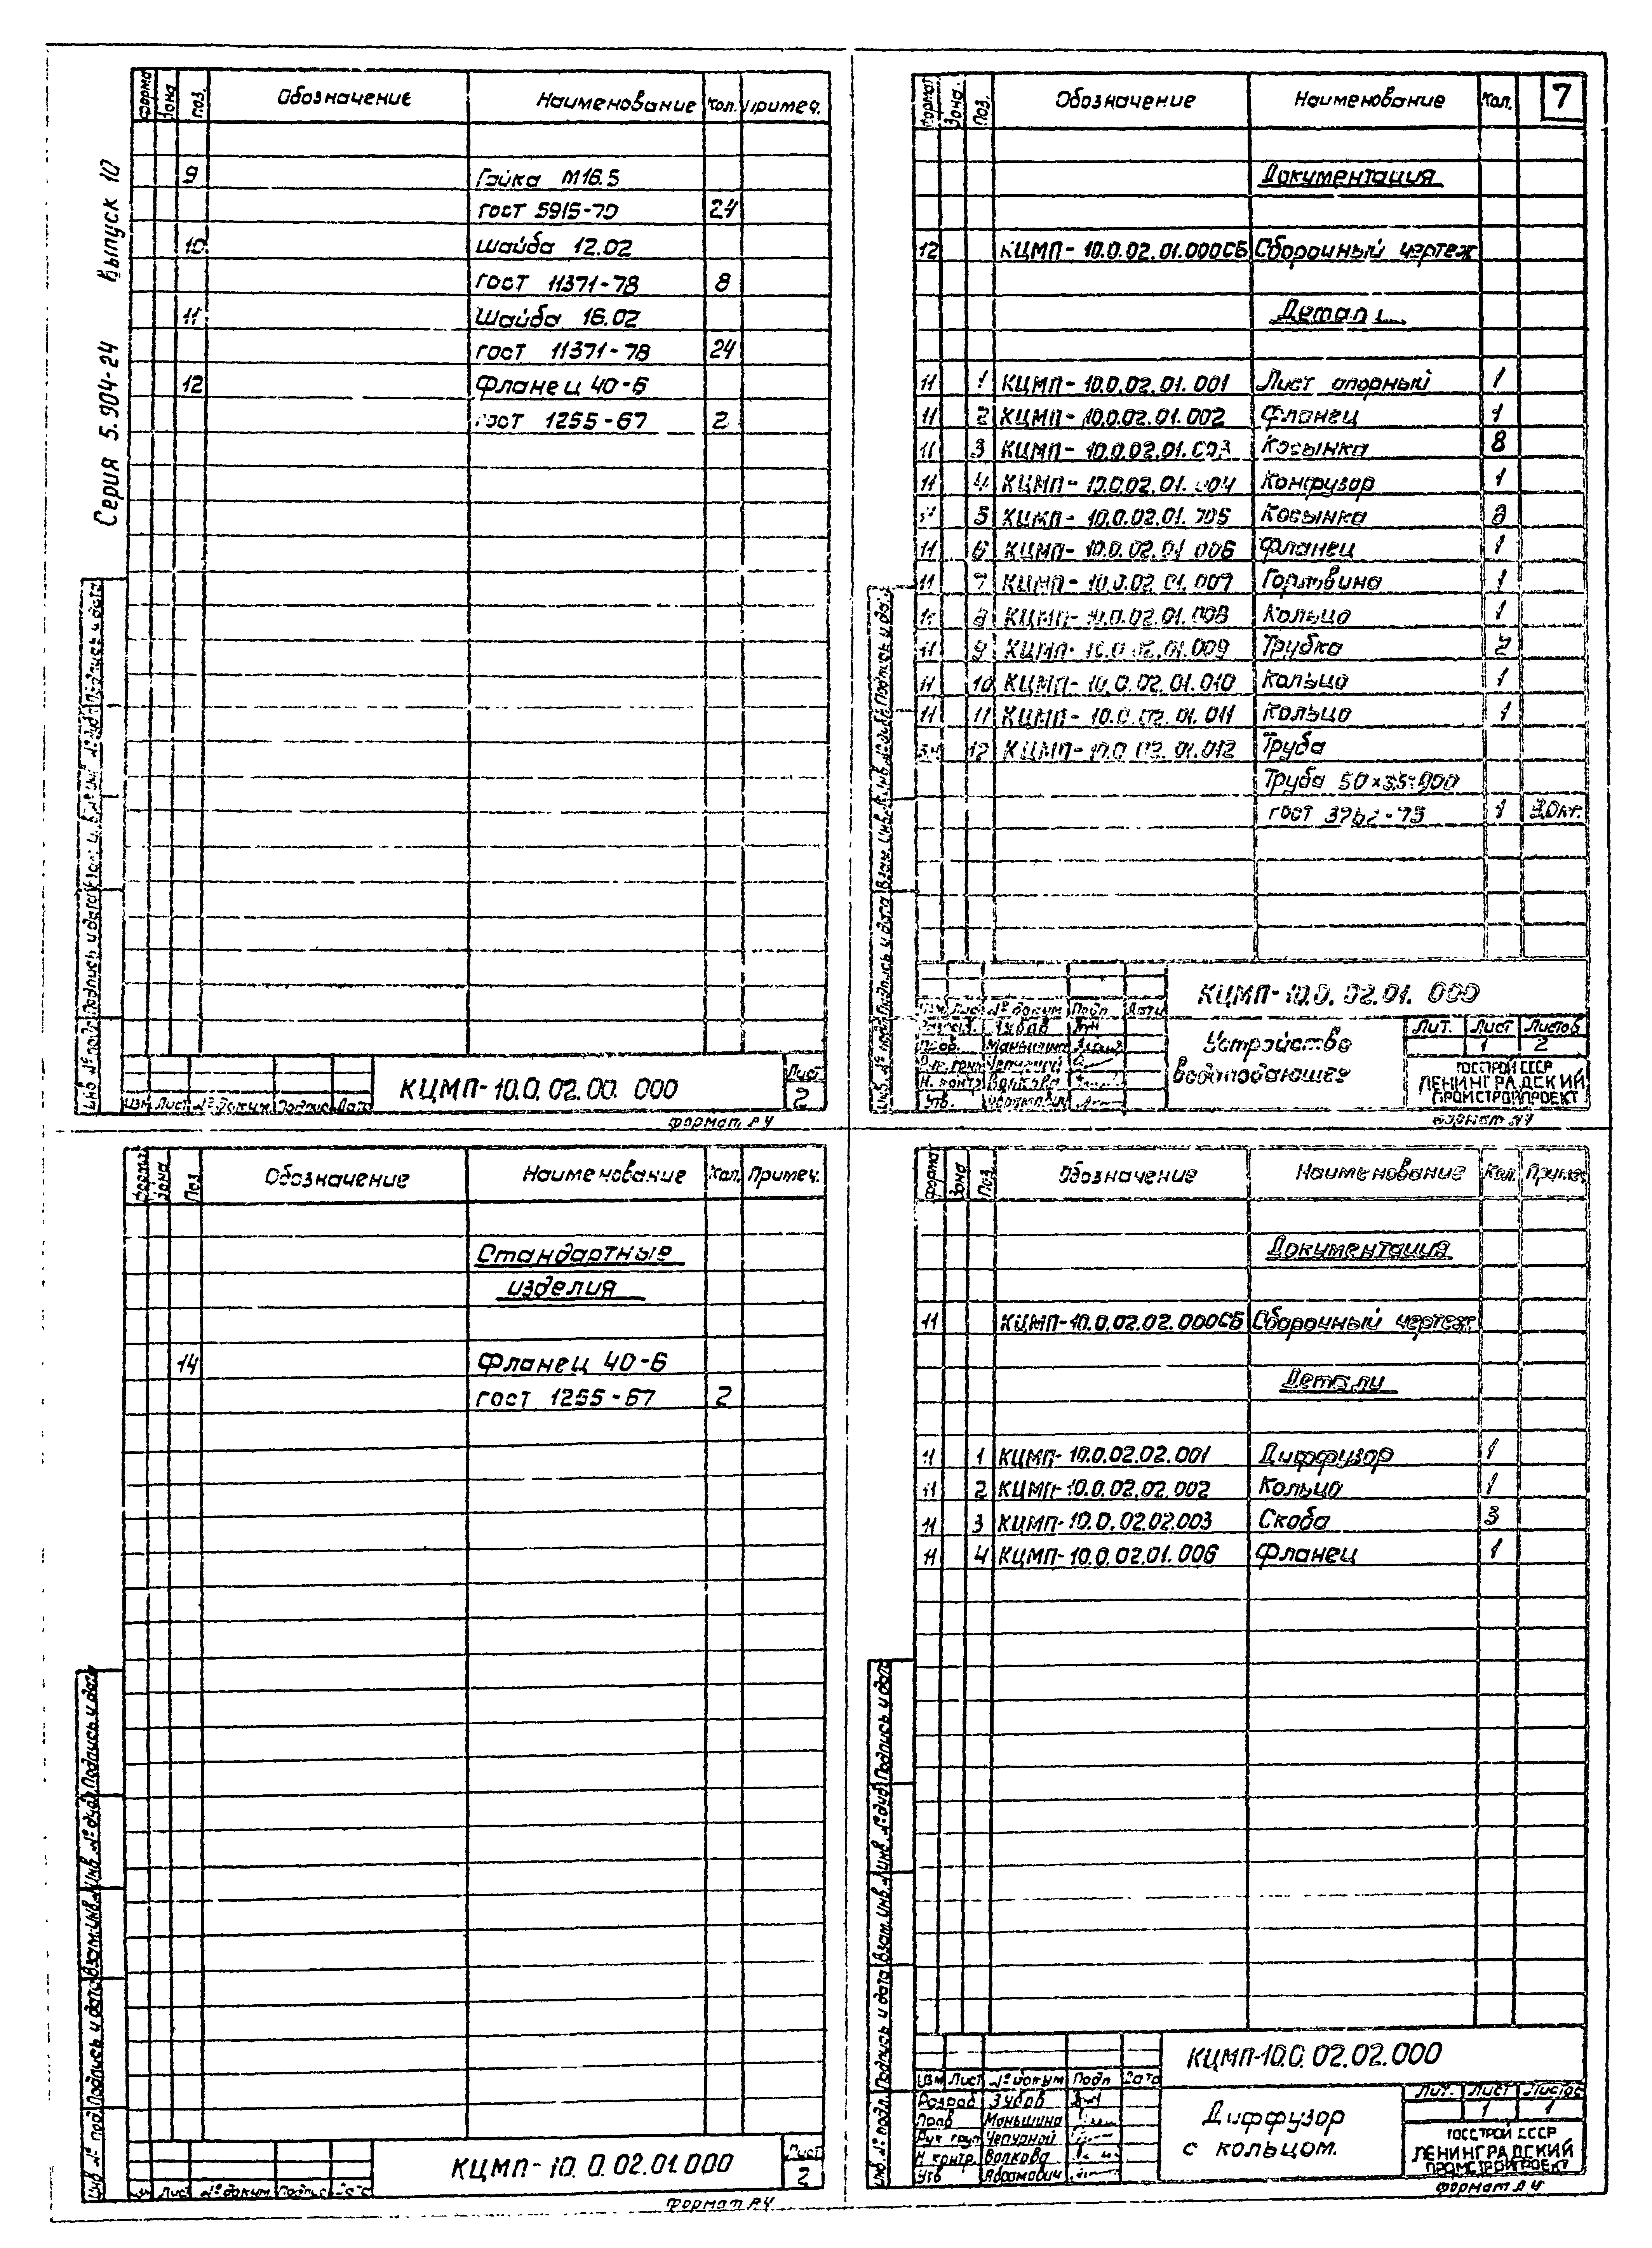 Серия 5.904-24 Выпуск 10
Формат Зона Поз. Обозначение Наименование Кол. Примеч.
9 Гайка М16.5
гост 5915-70 24
10 Шайба 12.02
гост 11371-78 8
11 Шайба 16.02
гост 11371-78 24
12 Фланец 40-6
гост 1255-67 2
Инв. № подл. Подпись и дата Взам. инв. № Инв. № дубл. Подпись и дата
Изм. Лист № докум. Подпись Дата
КЦМП-10.0.02.00.000
Лист 2
Формат А4
7
Формат Зона Поз. Обозначение Наименование Кол.
Документация
12 КЦМП-10.0.02.01.000СБ Сборочный чертеж
Детали
11 1 КЦМП-10.0.02.01.001 Лист опорный 1
11 2 КЦМП-10.0.02.01.002 Фланец 1
11 3 КЦМП-10.0.02.01.003 Косынка 8
11 4 КЦМП-10.0.02.01.004 Конфузор 1
11 5 КЦМП-10.0.02.01.005 Косынка
11 6 КЦМП-10.0.02.01.006 Фланец 1
11 7 КЦМП-10.0.02.01.007 Горловина 1
11 8 КЦМП-10.0.02.01.008 Кольцо 1
11 9 КЦМП-10.0.02.01.009 Трубка 2
11 10 КЦМП-10.0.02.01.010 Кольцо 1
11 11 КЦМП-10.0.02.01.011 Кольцо 1
БЧ 12 КЦМП-10.0.02.01.012 Труба
Труба
гост 1
Инв. № подл. Подпись и дата Взам. инв. № Инв. № дубл. Подпись и дата
КЦМП-10.0.02.01.000
Изм Лист № докум Подп Дата
Разраб. Зубов
Пров. Меньшина
Рук. груп Чепурной
Н. контр Волкова
Утв. Абрамович
Устройство
водоподающее
Лит. Лист Листов
1 2
ГОССТРОЙ СССР
ЛЕНИНГРАДСКИЙ
ПРОМСТРОЙПРОЕКТ
Формат А4
Формат Зона Поз. Обозначение Наименование Кол. Примеч.
Стандартные
изделия
14 Фланец 40-6
гост 1255-67 2
Инв № подл. Подпись и дата Взам. инв. № Инв. № дубл. Подпись и дата
Изм Лист № докум Подпись Дата
КЦМП-10.0.02.01.000
Лист 2
Формат А4
Формат Зона Поз. Обозначение Наименование Кол. Примеч
Документация
11 КЦМП-10.0.02.02.000СБ Сборочный чертеж
Детали
11 1 КЦМП-10.0.02.02.001 Диффузор 1
11 2 КЦМП-10.0.02.02.002 Кольцо 1
11 3 КЦМП-10.0.02.02.003 Скоба 3
11 4 КЦМП-10.0.02.01.006 Фланец 1
Инв. № подл. Подпись и дата Взам. инв. № Инв. № дубл Подпись и дата
КЦМП-10.0.02.02.000
Изм Лист № докум Подп Дата
Разраб Зубов
Пров Меньшина
Рук груп Чепурной
Н контр. Волкова
Утв Абрамович
Диффузор
с кольцом.
Лит. Лист Листов
1 1
ГОССТРОЙ СССР
ЛЕНИНГРАДСКИЙ
ПРОМСТРОЙПРОЕКТ
Формат А4